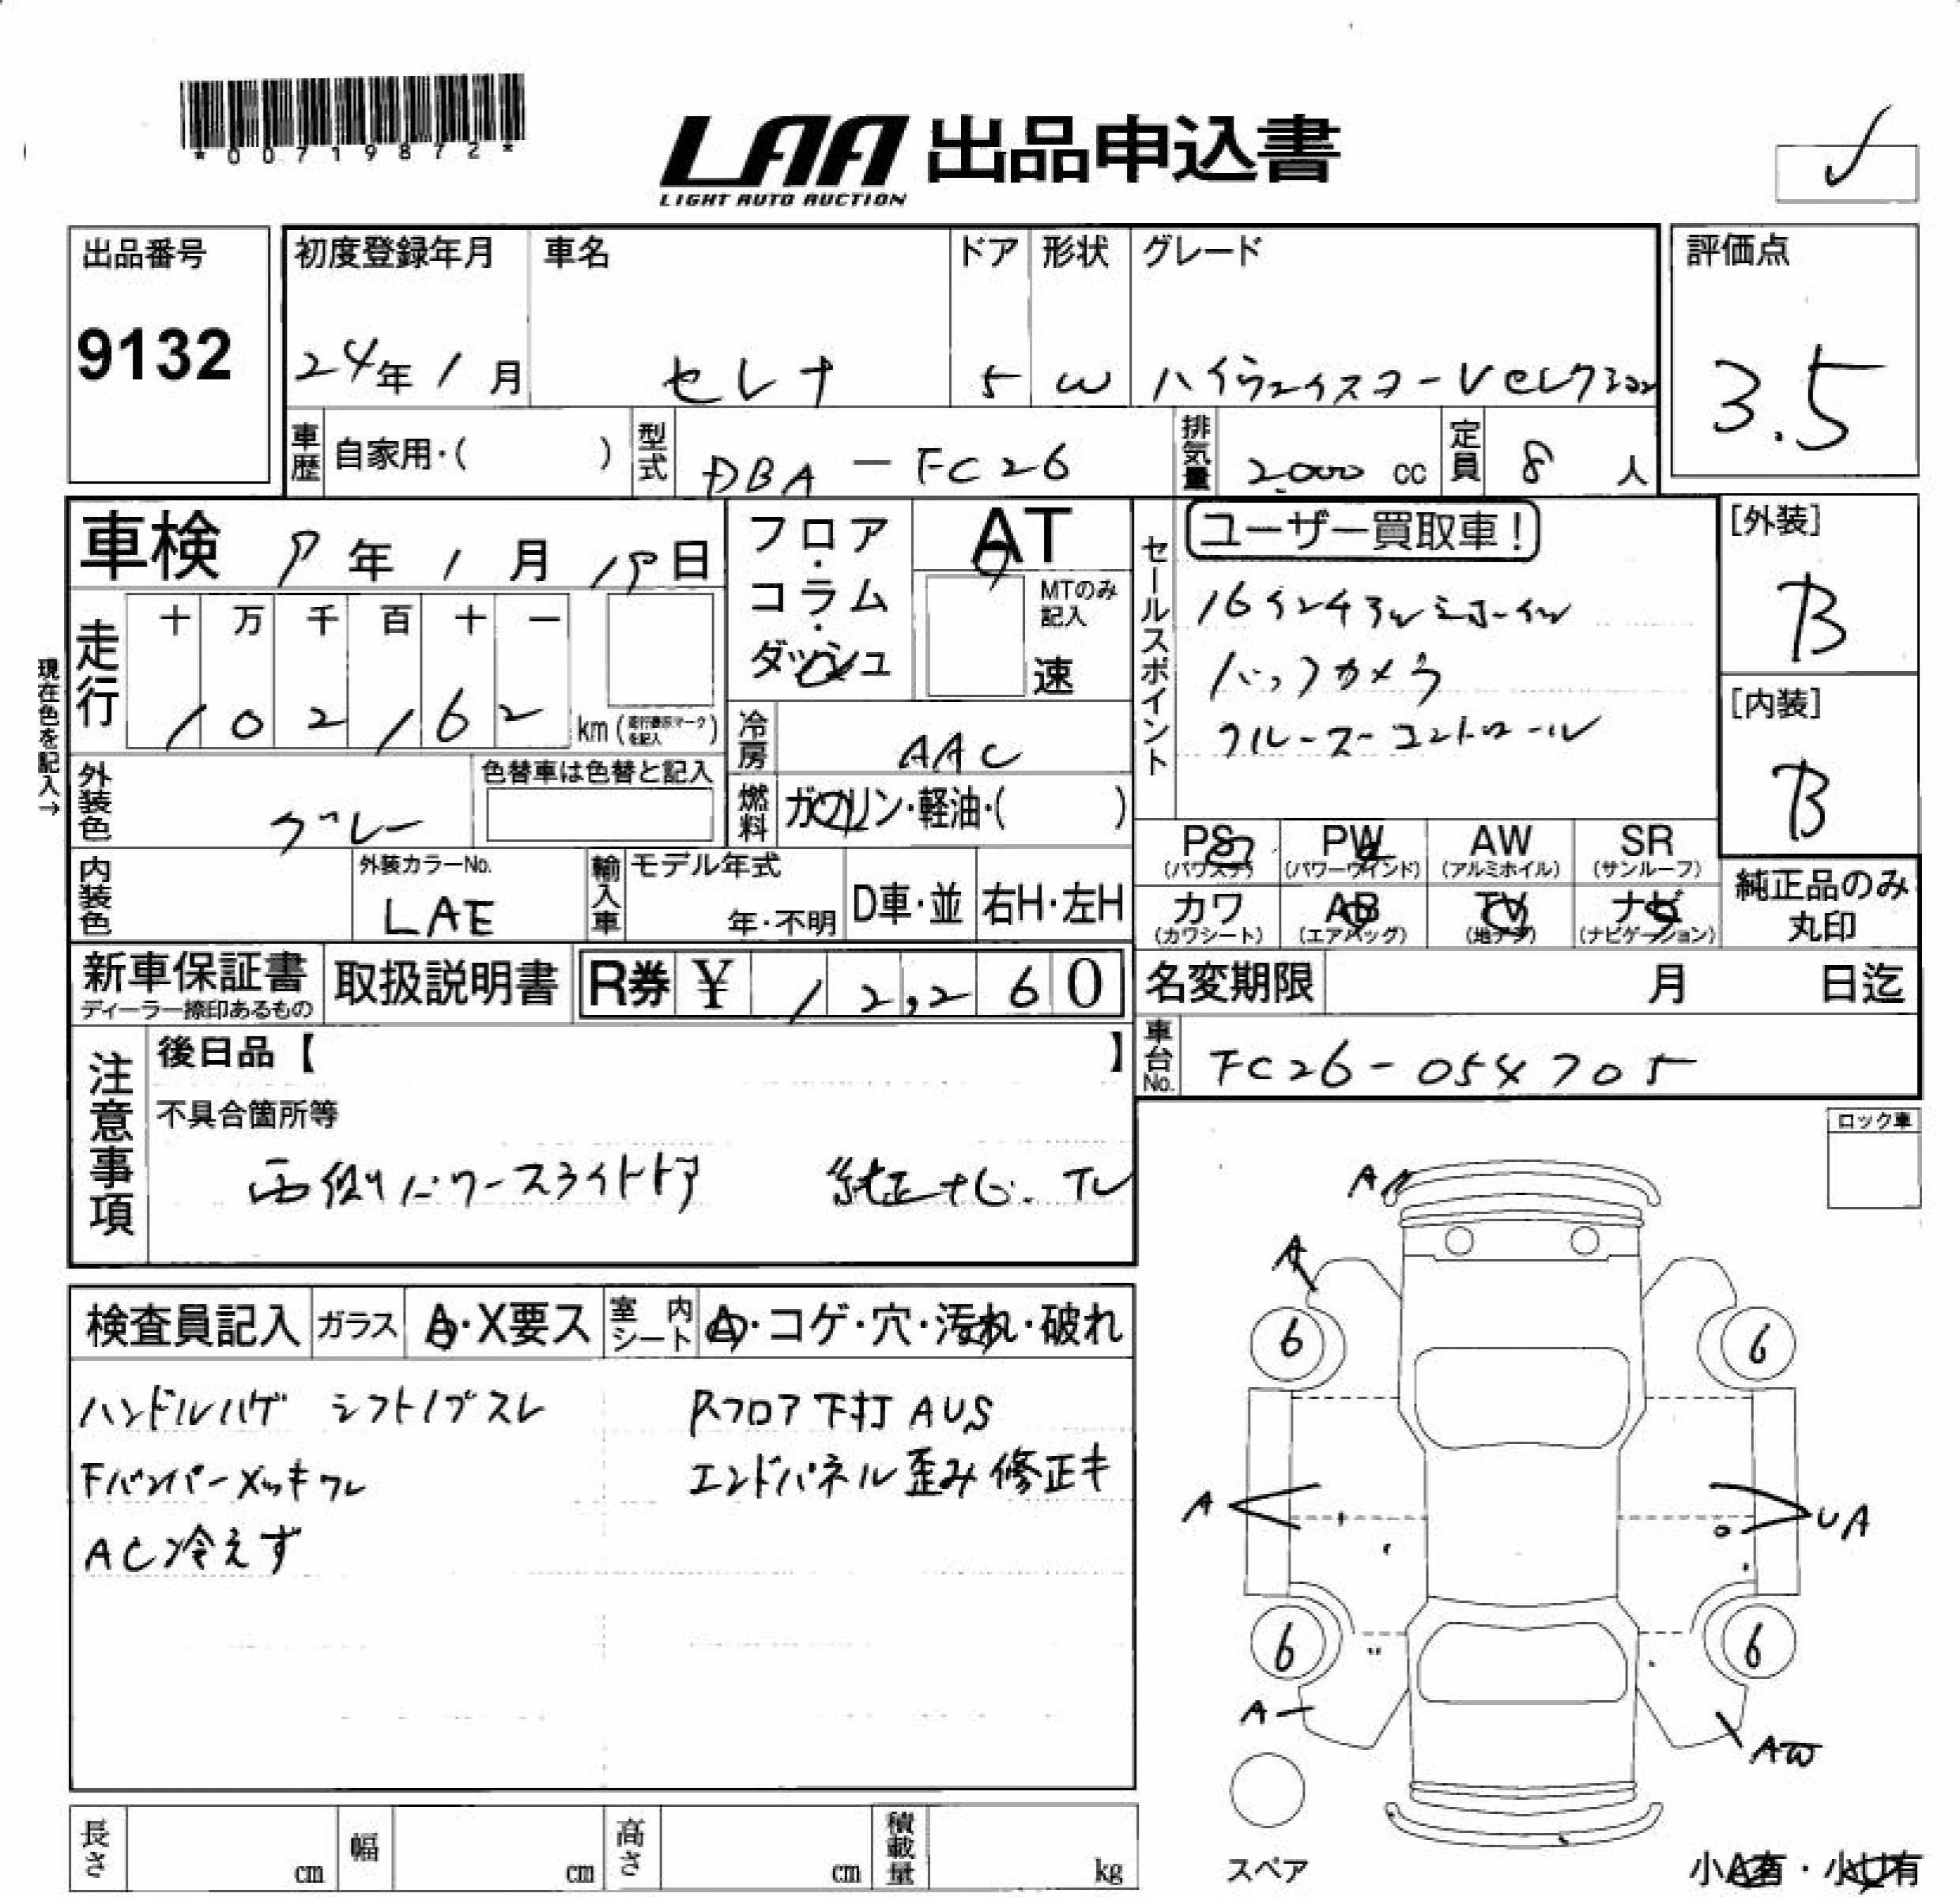 *00719872*
LAA 出品申込書
LIGHT AUTO AUCTION
出品番号
9132
初度登録年月
24年 1月
車名
セレナ
ドア
5
形状
W
グレード
ハイウェイスター Vセレクション
評価点
3.5
車歴
自家用・( )
型式
DBA-FC26
排気量
2,000 cc
定員
8 人
車検 7年 1月 19日
フロア・コラム・ダッシュ
AT
MTのみ記入
速
走行
十 万 千 百 十 一
1 0 2 1 6 2 km (走行表示マークを記入)
現在色を記入→
冷房
AAC
外装色
グレー
色替車は色替と記入
燃料
ガソリン・軽油・( )
内装色
外装カラーNo.
LAE
輸入車
モデル年式
年・不明
D車・並
右H・左H
セールスポイント
ユーザー買取車!
16インチアルミホイール
バックカメラ
クルーズコントロール
[外装]
B
[内装]
B
PS (パワステ)
PW (パワーウインド)
AW (アルミホイル)
SR (サンルーフ)
カワ (カワシート)
AB (エアバッグ)
TV (地デジ)
ナビ (ナビゲーション)
純正品のみ丸印
新車保証書
ディーラー捺印あるもの
取扱説明書
R券 ¥ 12,260
名変期限 月 日迄
車台No.
FC26-054705
注意事項
後日品【 】
不具合箇所等
両側パワースライドドア 純正ナビ. TV
ロック車
検査員記入
ガラス
A・X要ス
室内シート
A・コゲ・穴・汚れ・破れ
ハンドルハゲ シフトノブスレ
Fバンパーメッキワレ
AC冷えず
Rフロア下打AUS
エンドパネル歪み修正キ
A
A
6
6
A
UA
6
6
A
AW
スペア
小A有・小U有
長さ cm
幅 cm
高さ cm
積載量 kg